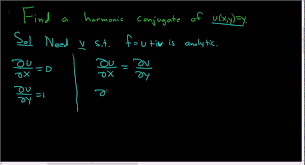 Find a harmonic conjugate of u(x,y)=y.
Sol Need v s.t. f=u+iv is analytic.
∂u/∂x = 0 | ∂u/∂x = ∂v/∂y
∂u/∂y = 1 | ∂